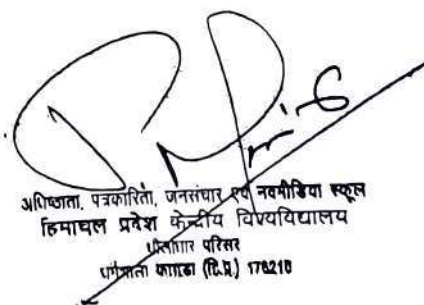 अधिष्ठाता, पत्रकारिता, जनसंचार एवं नवमीडिया स्कूल
हिमाचल प्रदेश केन्द्रीय विश्वविद्यालय
धौलाधार परिसर
धर्मशाला कांगड़ा (हि.प्र.) 176215